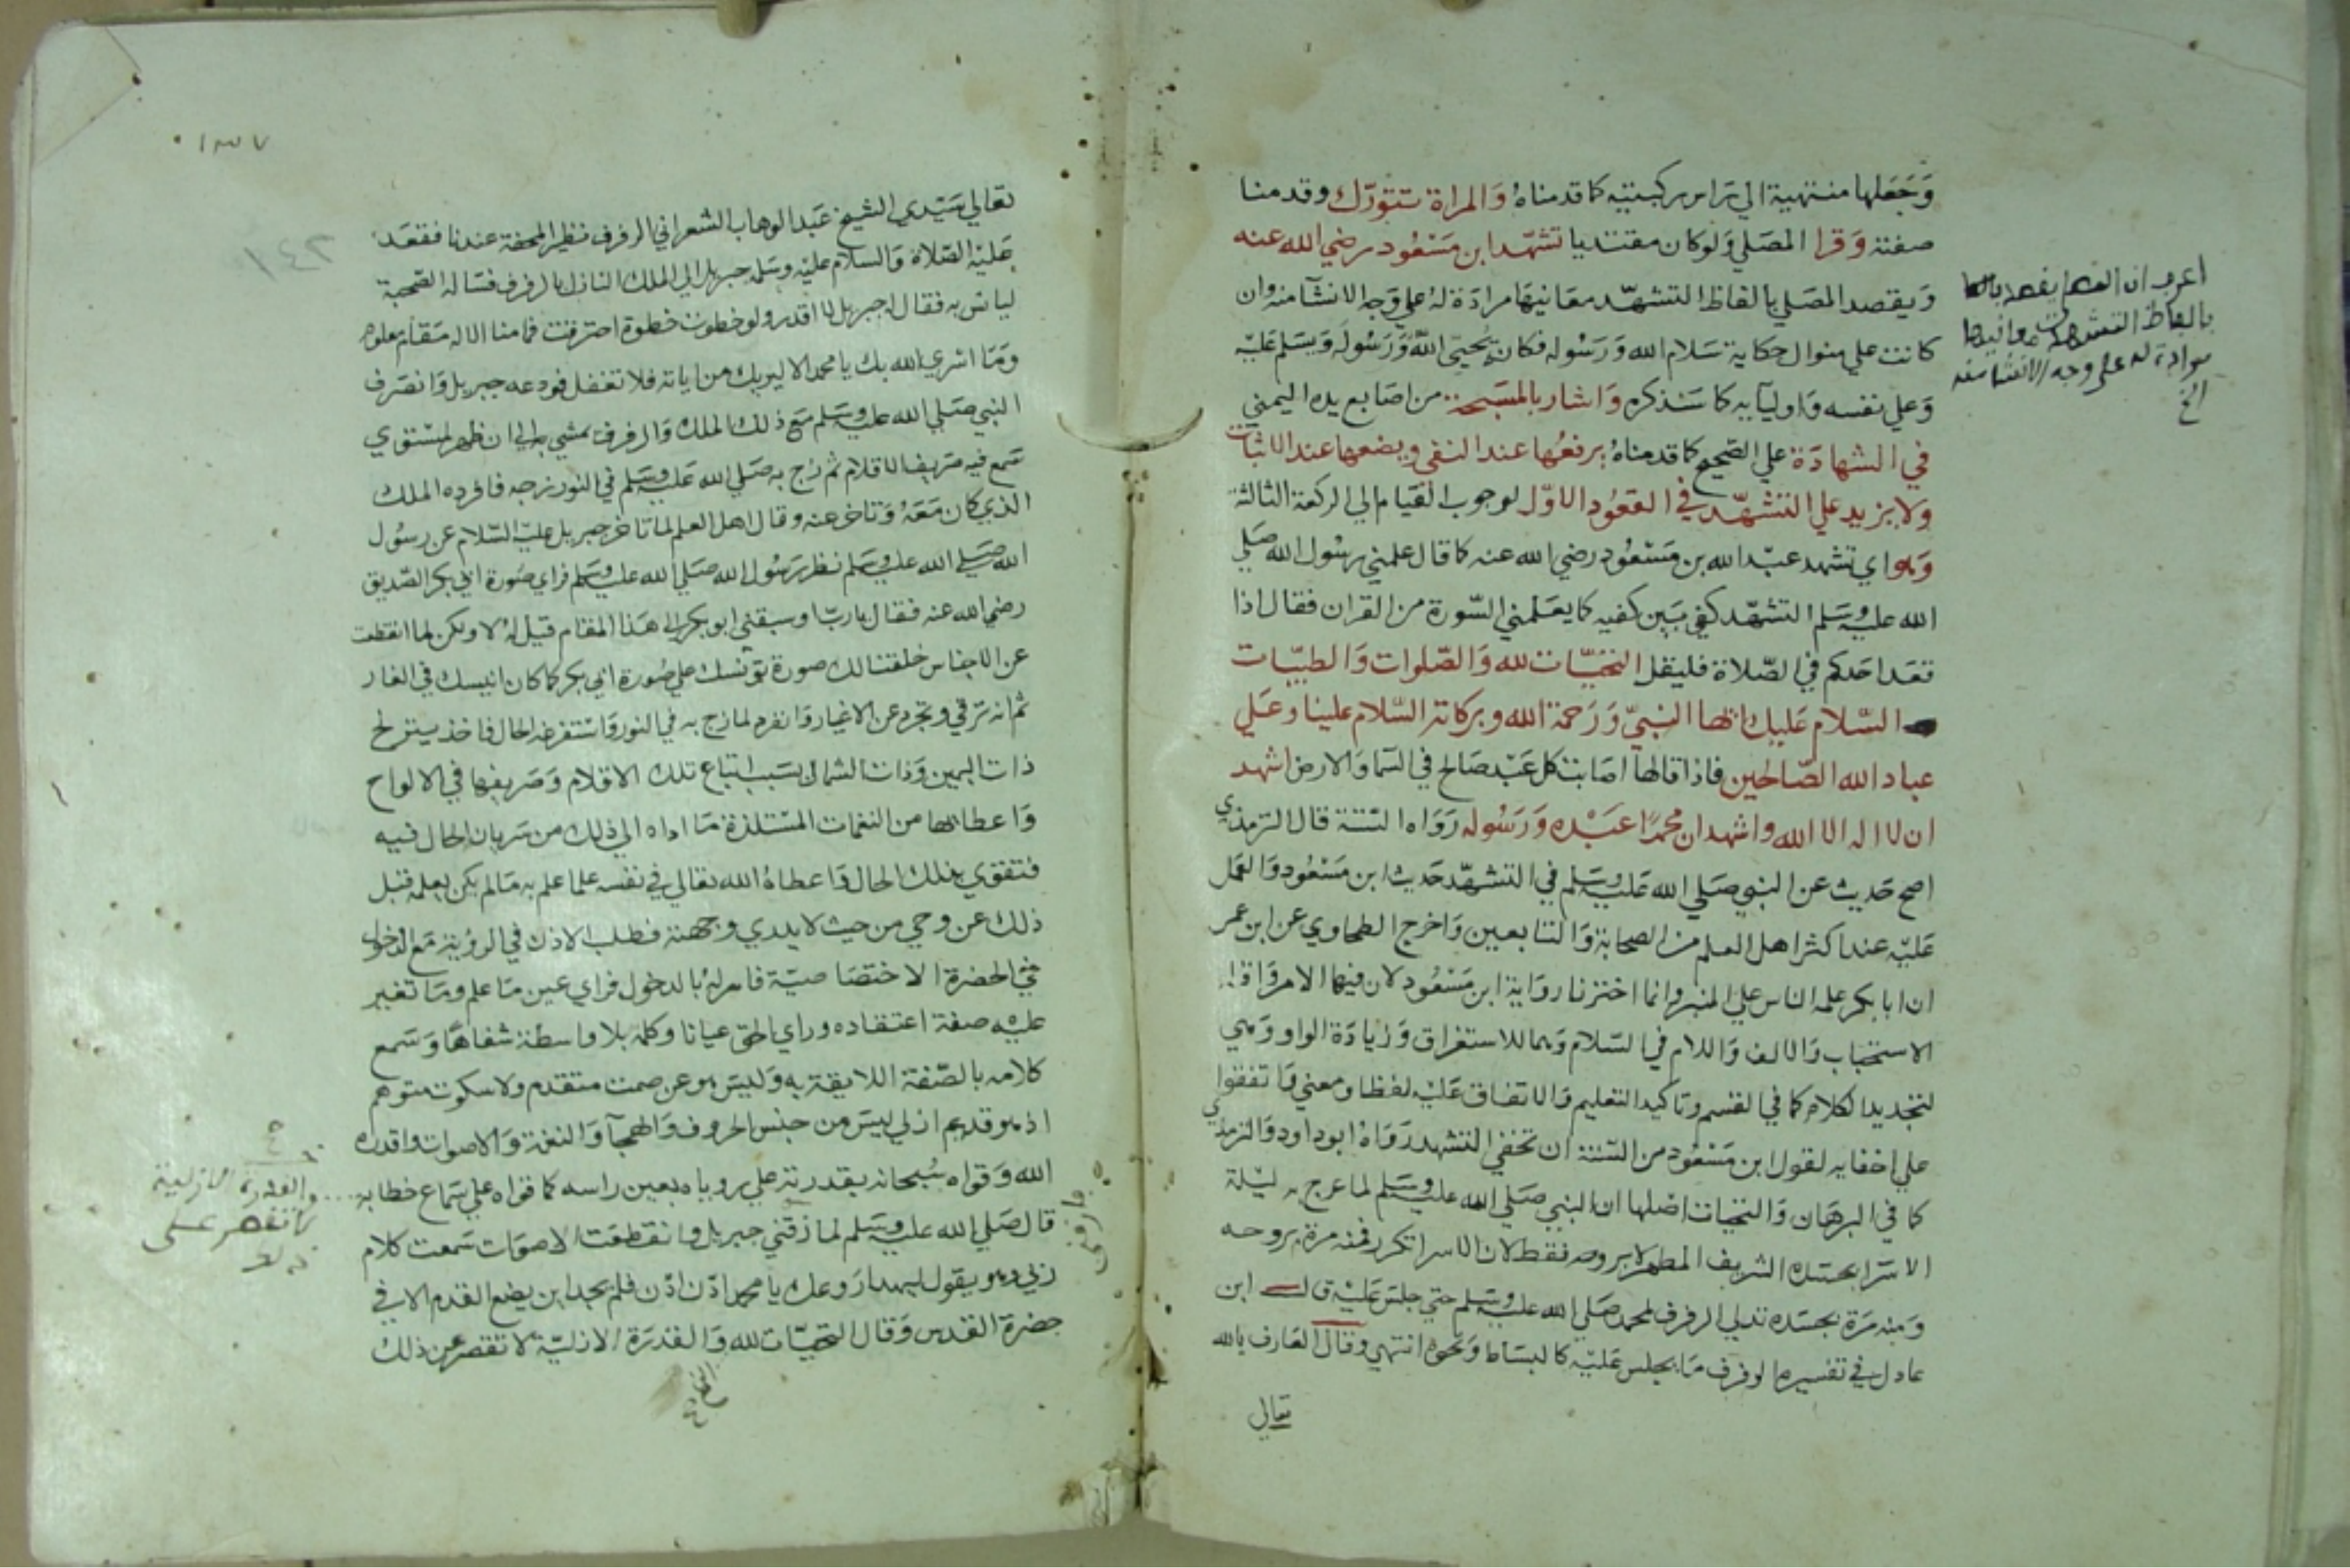 وَجَعَلها منتهية الي رَاس ركبتيه كما قدمناهُ وَالمراة تتورّك وقدمنا
صفته وَقرا المصَلي وَلوكان مقتديا تشهّد ابن مَسْعُود رضي الله عنه
وَيقصد المصَلي بالفاظ التشهّد معَانيهَا مرادَة لهُ علي وَجه الانشآ منه وان
كانت علي منوال حكاية سَلام الله وَرَسُوله فكانه يُحيّي اللّه وَرَسُولَه وَيسَلم عَليْه
وَعلي نفسه وَاوليآيه كما سَنذكره وَاشار بالمسَبحة من اصَابع يده اليمني
في الشهادَة علي الصَحيح كما قدمناهُ يرفعُها عند النفي ويضعها عند الاثبات
وَلا يزيد علي التشهّد في القعُود الاوّل لوجوب القيَام الي الركعة الثالثة
وَهو اي تشهد عبْد الله بن مَسْعُود رضي الله عنه كما قال علمني رسُول الله صَلي
الله عليْه وسَلم التشهّد كفي بَين كفيه كما يعَلمني السّورة من القران فقال اذا
قعَد احَدكم في الصّلاة فليقل التحيّات لله وَالصّلوات وَالطيّبات
السّلام عَليك ايّها النبيّ وَرَحمة الله وبركاته السّلام علينا وعَلي
عباد الله الصّالحين فاذا قالها اصَابت كل عَبْد صَالح في السّما وَالارض اشهد
ان لا اله الا الله واشهد ان محمّدًا عَبْده وَرَسُوله رَوَاه الستة قال الترمذي
اصح حَديث عن النبي صَلي الله عَليْه وسَلم في التشهّد حَديث ابن مَسْعُود وَالعمَل
عَليْه عند اكثر اهل العلم من الصحابة وَالتابعين وَاخرج الطحاوي عن ابن عمر
ان ابا بكر علمه الناس علي المنبر وانما اخترنا روَاية ابن مَسْعُود لان فيها الامر وَاقله
الاستحبَاب وَالالف وَاللام في السّلام وَهما للاستغراق وَزيادَة الواو وَهي
لتجديد الكلام كما في القسم وتاكيد التعليم وَالاتفاق عَليْه لفظا ومعني وَاتفقوا
علي اخفايه لقول ابن مَسْعُود من السّنة ان تخفي التشهد رَوَاهُ ابو داود وَالترمذي
كما في البرهَان وَالتحيات اصْلها ان النبي صَلي الله عليْه وسَلم لما عرج به ليْلة
الاسْرا بجسَده الشريف المطهر لا بروحه فقط لان الاسرا تكرر فمنه مرة بروحه
وَمنه مَرة بجسَده تدلي الرفرف لمحمد صَلي الله عليْه وسَلم حتي جلسَ عَليْه قال ابن
عادل في تفسيره الرفرف مَا يجلس عَليْه كالبسَاط وَنحوه انتهي وَقال العَارف بالله
تعالي
اعرف ان
بالفاظ التشهد معانيها
مرادة له علي وجه الانشا منه
الخ
١٣٧
١٤٢
تعَالي سَيّدي الشيخ عَبد الوهاب الشعراني الرفرف نظير المحفة عندنا فقعَد
عَليْه الصّلاة وَالسلام عليْه وسَلمه جبريل الي الملك النازل بالرفرف فسَاله الصّحبة
ليانس به فقال له جبريل لا اقدر ولو خطوت خطوة احترقت فما منا الا له مَقام معلوم
وَمَا اسْري الله بك يا محمد الا ليريك من اياته فلا تغفل فودعه جبريل وَانصَرف
النبي صَلي الله عليْه وسَلم مَع ذلك الملك وَالرفرف يمشي به الي ان ظهر لمسْتوي
سَمع فيه صَريف الاقلام ثم زُج به صَلي الله عَليْه وسَلم في النور زجه فافرده الملك
الذي كان مَعَهُ وَتاخر عنه وقال اهل العلم لما تاخر جبريل عليْه السّلام عن رسُول
الله صَلي الله عليْه وسَلم نظر رَسُول الله صَلي الله عليْه وسَلم فراي صُورة ابي بكر الصّديق
رضي الله عنه فقال يا ربّ اوسبقني ابو بكر الي هَذا المقام قيل لهُ لا ولكن لما انقطعت
عن الاجناس خلقنا لك صورة تؤنسك علي صُورة ابي بكر كما كان انيسك في الغار
ثم انه ترقي وتجرد عن الاغيار وَانفرد لما زج به في النور وَاسْتفزه الحال فاخذ يترنح
ذات اليمين وَذات الشمال بسَبب اتباع تلك الاقلام وَصَريفها في الالواح
وَاعطايها من النغمات المسْتلذة مَا اداه الي ذلك من سَريان الحال فيه
فتقوي بذلك الحال وَاعطاهُ الله تعَالي في نفسه علما علم به مَا لم يكن يعلمه قبل
ذلك عن وحي من حيث لا يدري وجهته فطلب الاذن في الرؤية مَع الدخول
في الحضرة الاختصَاصيّة فامر لهُ بالدخول فراي عين مَا علم وَمَا تغير
عليْه صفة اعتقاده وراي الحق عيانا وكلمه بلا واسطة شفاهًا وَسَمع
كلامه بالصّفة اللايقة به وَليسَ هو عن صمت متقدم ولا سكوت متوهم
اذ هو قديم ازلي ليسَ من جنس الحروف وَالهجآ وَالنغمة وَالاصوات واقدره
الله وَقواه سُبحانه بقدرته علي روياه بعين راسه كما قواه علي سَماع خطابه
قال صَلي الله عليْه وسَلم لما زقني جبريل وانقطعَت الاصوَات سَمعت كلام
ربي وهو يقول ليهدا رَوعك يا محمد ادن ادن فلم يجد اين يضع القدم الا في
حضرة القدس وَقال التحيّات لله وَالقدرَة الازليّة لا تقصر عن ذلك
والقدرة الازلية
لا تقصر عن
ذلك